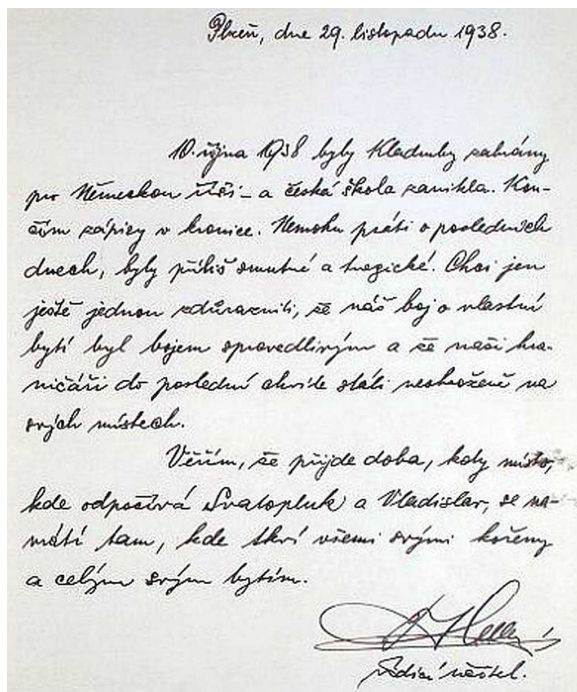 Plzeň, dne 29. listopadu 1938.
10. října 1938 byly Kladruby zabrány
pro Německou říši – a česká škola zanikla. Kon-
čím zápisy v kronice. Nemohu psáti o posledních
dnech, byly příliš smutné a tragické. Chci jen
ještě jednou zdůrazniti, že náš boj o vlastní
bytí byl bojem spravedlivým a že naši hra-
ničáři do poslední chvíle stáli neohroženě na
svých místech.
Věřím, že přijde doba, kdy místo,
kde odpočívá Svatopluk a Vladislav, se na-
vrátí tam, kde tkví všemi svými kořeny
a celým svým bytím.
řídící učitel.